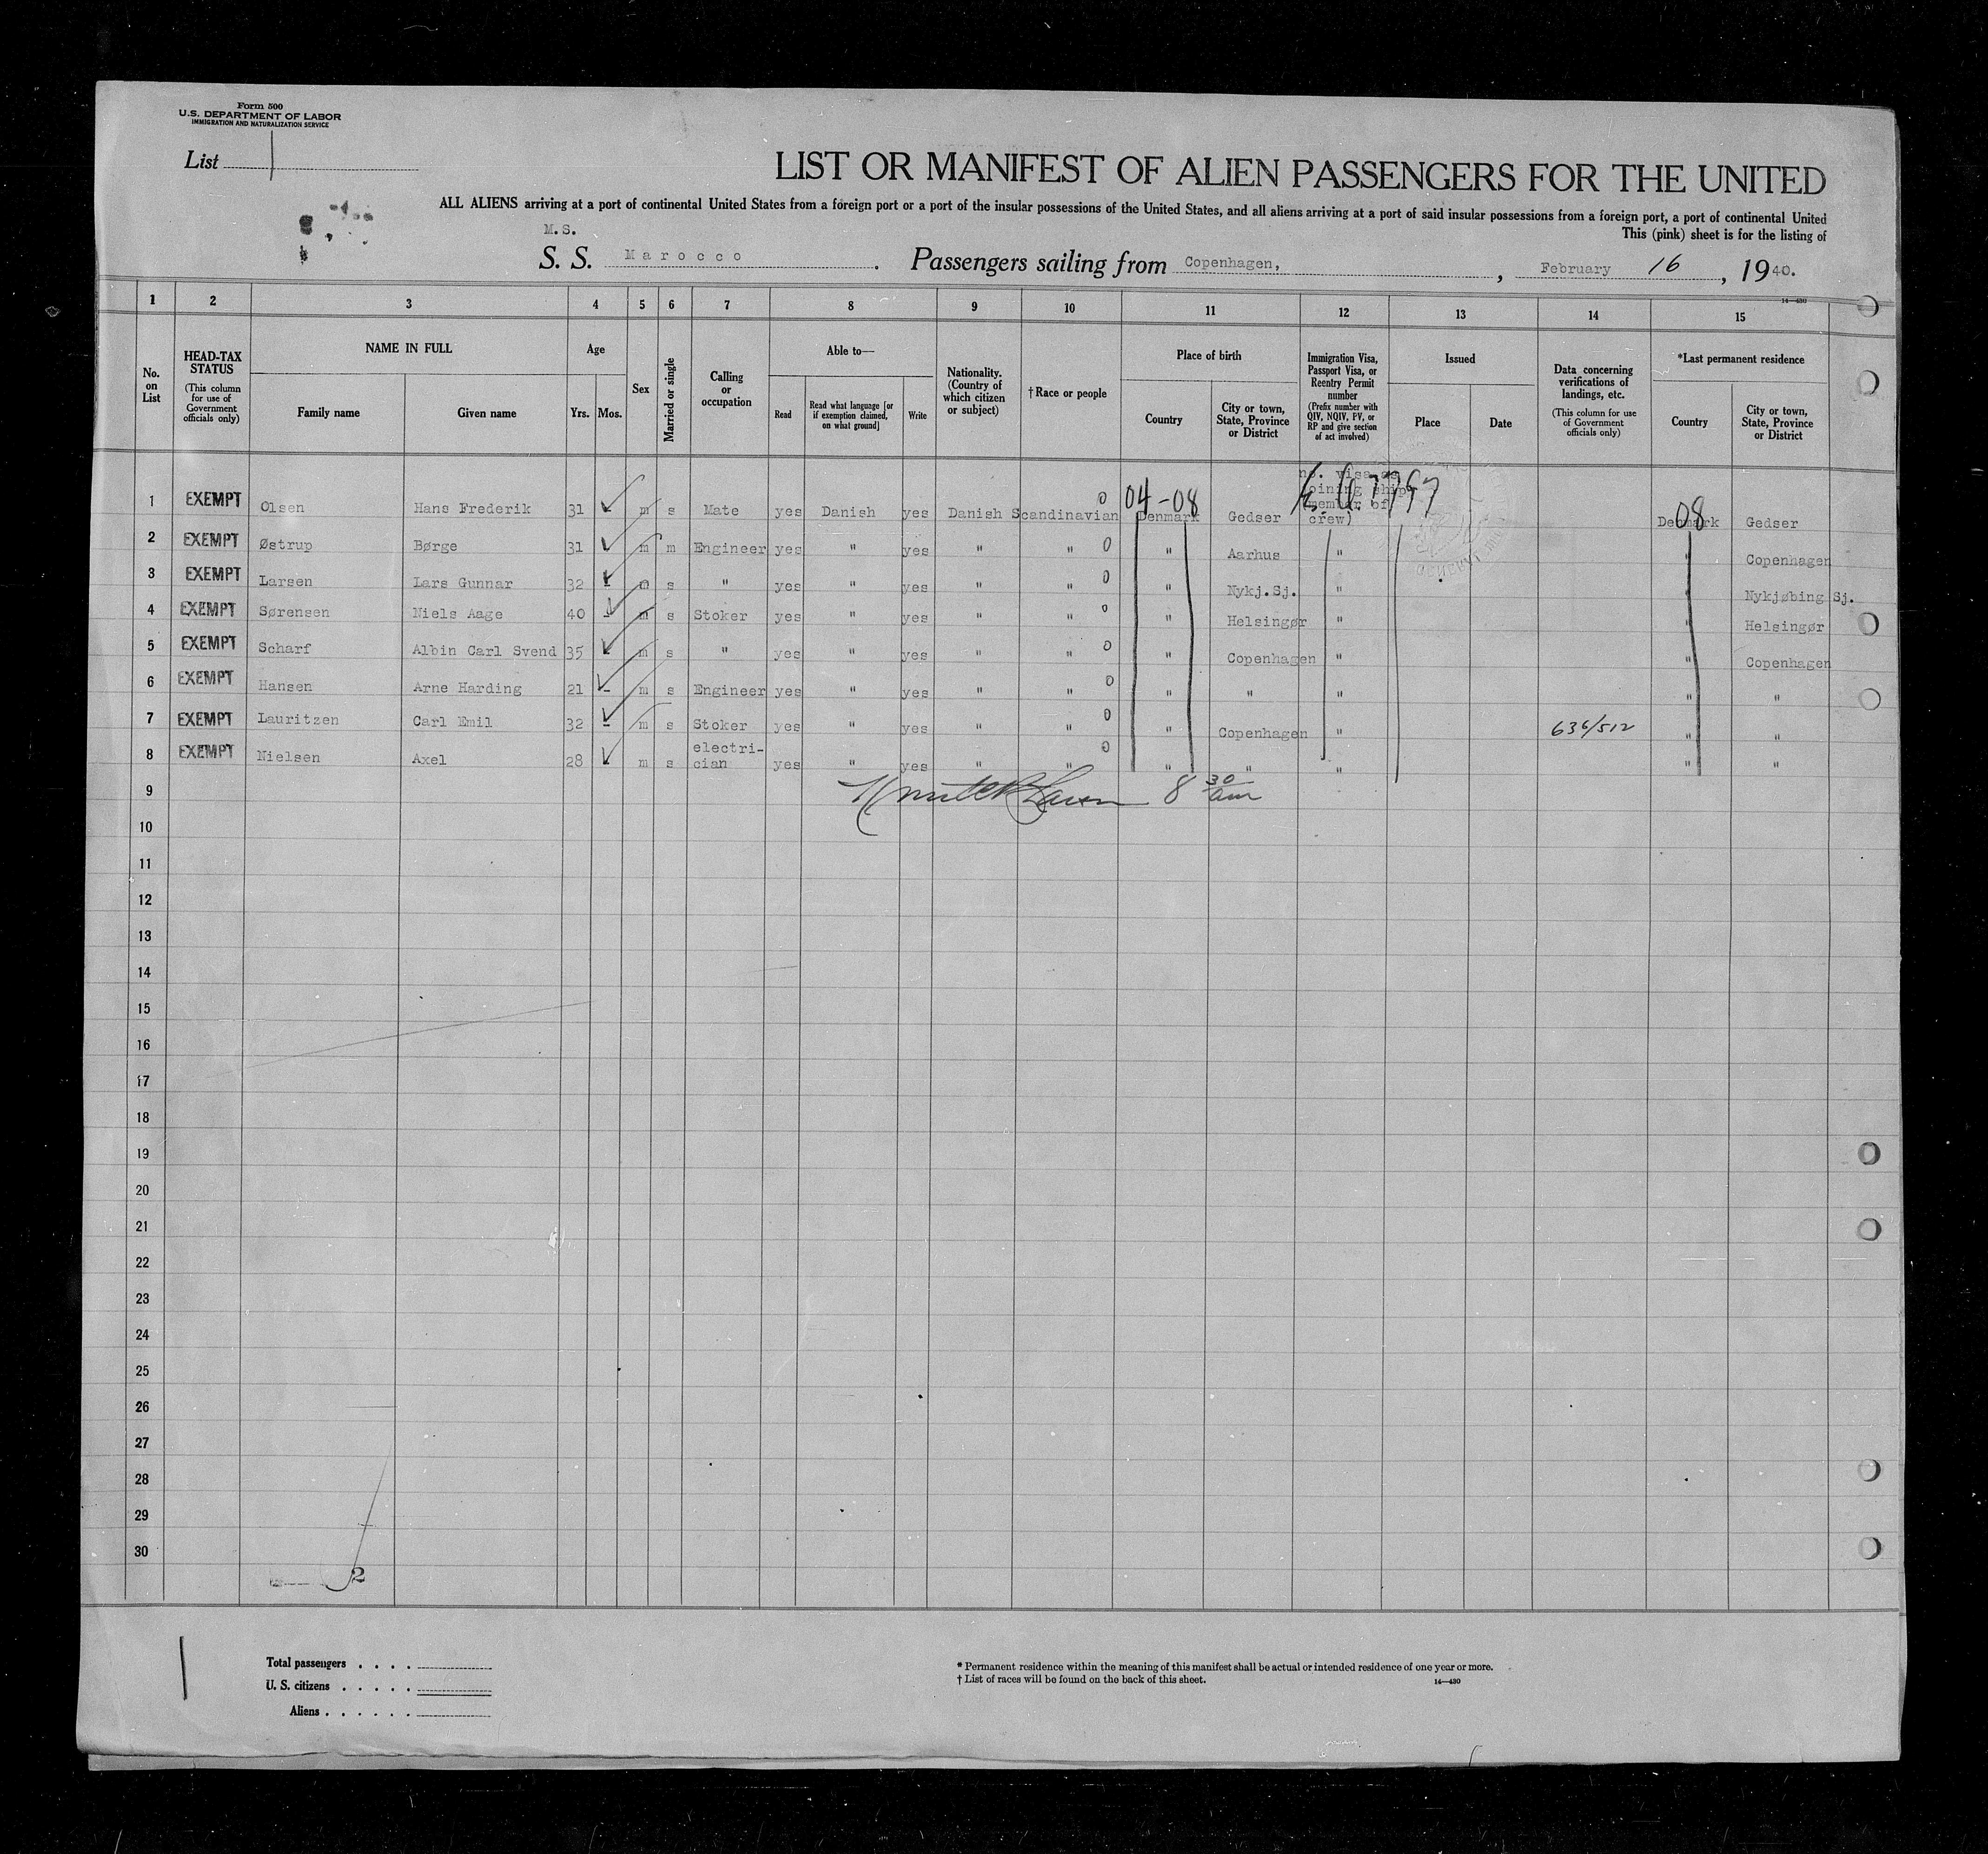 Form 500
U.S. DEPARTMENT OF LABOR
IMMIGRATION AND NATURALIZATION SERVICE
List 1
LIST OR MANIFEST OF ALIEN PASSENGERS FOR THE UNITED
ALL ALIENS arriving at a port of continental United States from a foreign port or a port of the insular possessions of the United States, and all aliens arriving at a port of said insular possessions from a foreign port, a port of continental United
This (pink) sheet is for the listing of
M.S.
S. S. Marocco. Passengers sailing from Copenhagen, , February 16, 1940.
14—430
1 2 3 4 5 6 7 8 9 10 11 12 13 14 15
No. on List
HEAD-TAX STATUS
(This column for use of Government officials only)
NAME IN FULL
Family name Given name
Age
Yrs. Mos.
Sex
Married or single
Calling or occupation
Able to—
Read Read what language [or if exemption claimed, on what ground] Write
Nationality. (Country of which citizen or subject)
† Race or people
Place of birth
Country City or town, State, Province or District
Immigration Visa, Passport Visa, or Reentry Permit number
(Prefix number with QIV, NQIV, PV, or RP and give section of act involved)
Issued
Place Date
Data concerning verifications of landings, etc.
(This column for use of Government officials only)
*Last permanent residence
Country City or town, State, Province or District
no. visa as
joining ship
member of
crew)
04-08
08
1 EXEMPT Olsen Hans Frederik 31 - m s Mate yes Danish yes Danish Scandinavian 0 Denmark Gedser Denmark Gedser
2 EXEMPT Østrup Børge 31 m m Engineer yes " yes " " 0 " Aarhus " " Copenhagen
3 EXEMPT Larsen Lars Gunnar 32 - m s " yes " yes " " 0 " Nykj.Sj. " " Nykjøbing Sj.
4 EXEMPT Sørensen Niels Aage 40 - m s Stoker yes " yes " " 0 " Helsingør " " Helsingør
5 EXEMPT Scharf Albin Carl Svend 35 - m s " yes " yes " " 0 " Copenhagen " " Copenhagen
6 EXEMPT Hansen Arne Harding 21 - m s Engineer yes " yes " " 0 " " " " "
7 EXEMPT Lauritzen Carl Emil 32 - m s Stoker yes " yes " " 0 " Copenhagen " 636/512 " "
8 EXEMPT Nielsen Axel 28 m s electri-
cian yes " yes " " 0 " " " " "
9 8 30 am
10
11
12
13
14
15
16
17
18
19
20
21
22
23
24
25
26
27
28
29
30
2
Total passengers . . . .
U. S. citizens . . . . .
Aliens . . . . . .
* Permanent residence within the meaning of this manifest shall be actual or intended residence of one year or more.
† List of races will be found on the back of this sheet.
14—430